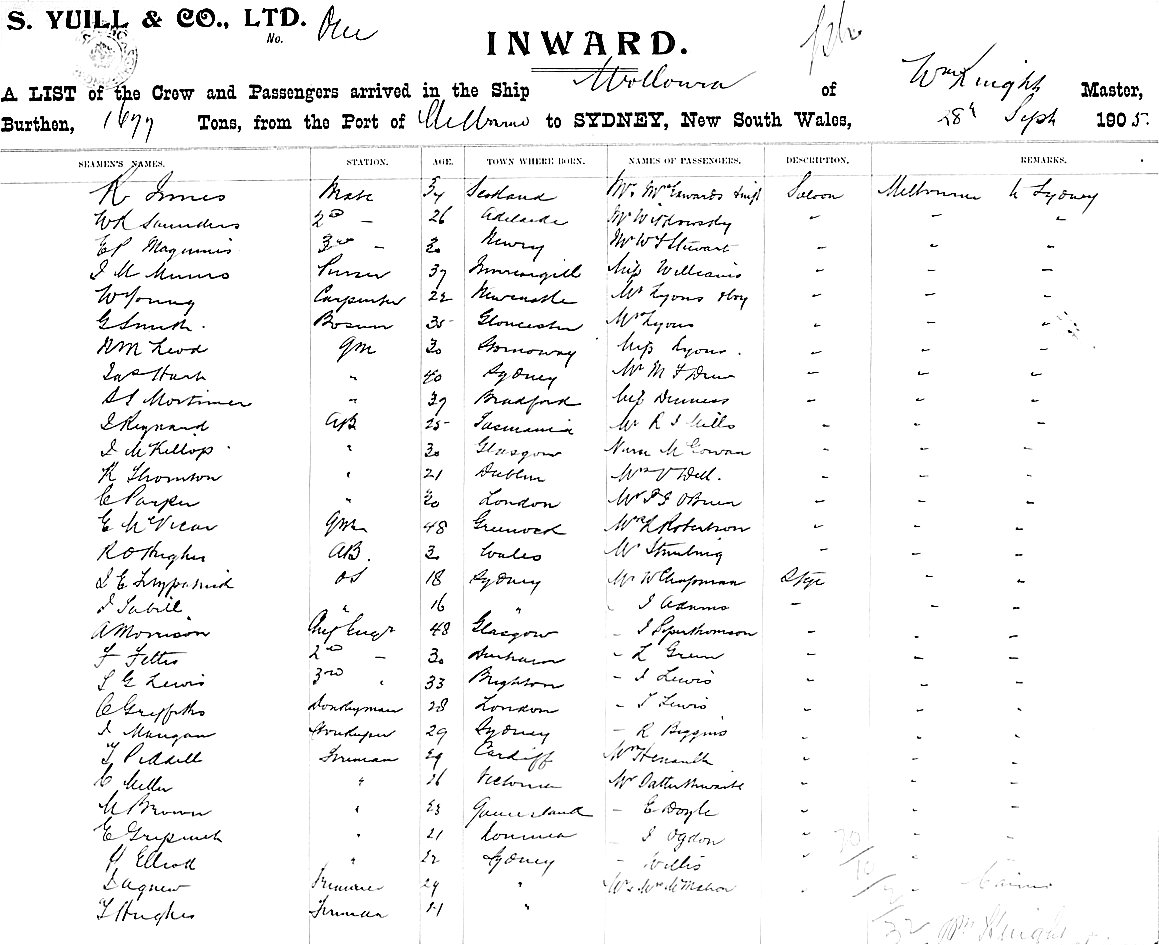 S. YUILL & CO., LTD.
No. One
INWARD.
A LIST of the Crew and Passengers arrived in the Ship Wollowra of Wm Knight Master,
Burthen, 1677 Tons, from the Port of Melbourne to SYDNEY, New South Wales, 28th Sept 1905.
SEAMEN'S NAMES. STATION. AGE. TOWN WHERE BORN. NAMES OF PASSENGERS. DESCRIPTION. REMARKS.
R Innes Mate 34 Scotland Mr Mrs Edwards Saloon Melbourne to Sydney
WR Saunders 2nd - 26 Adelaide Mr " " "
EP Maginnis 3rd - 30 Newry Mr W Stewart " " "
J M Munro Purser 37 Invercargill Miss Williams " " "
W Young Carpenter 22 Newcastle Mr Lyons & boy " " "
G Smith Bosun 35 Gloucester Mr Lyons " " "
N McLeod QM 30 Stornoway Miss Lyons " " "
Jas Hart " 40 Sydney Mr M " " "
Mortimer " 39 Bradford Miss " " "
J Reynard AB 25 Tasmania Mr R J Mills " " "
J McKillop " 30 Glasgow Nurse McCowan " " "
R Thornton " 21 Dublin Mrs V Dell " " "
C Parker " 20 London O'Brien " " "
E McVicar 48 Greenock Robertson " " "
R O Hughes AB. 30 Wales Mr " " "
J E Fitzpatrick OS 18 Sydney Mr W Chapman Stge " "
J " 16 " - J Adams " " "
A Morrison Chf Engr 48 Glasgow - J " " "
F Fettis 2nd - 30 Durham - L Green " " "
S G Lewis 3rd " 33 Brighton - J Lewis " " "
C Griffiths Donkeyman 28 London - Lewis " " "
J Mangan Storekeeper 29 Sydney - R Biggins " " "
T Fireman 29 Cardiff " " "
C Miller " 26 Victoria Mr Satterthwaite " " "
M Brown " 23 Queensland - C Doyle " " "
E " 21 - J Ogdon " " "
H Elliott " 22 Sydney - Willis " "
D Agnew 29 " Mr & Mrs McMahon " "
T Hughes Fireman 21 "
Wm Knight